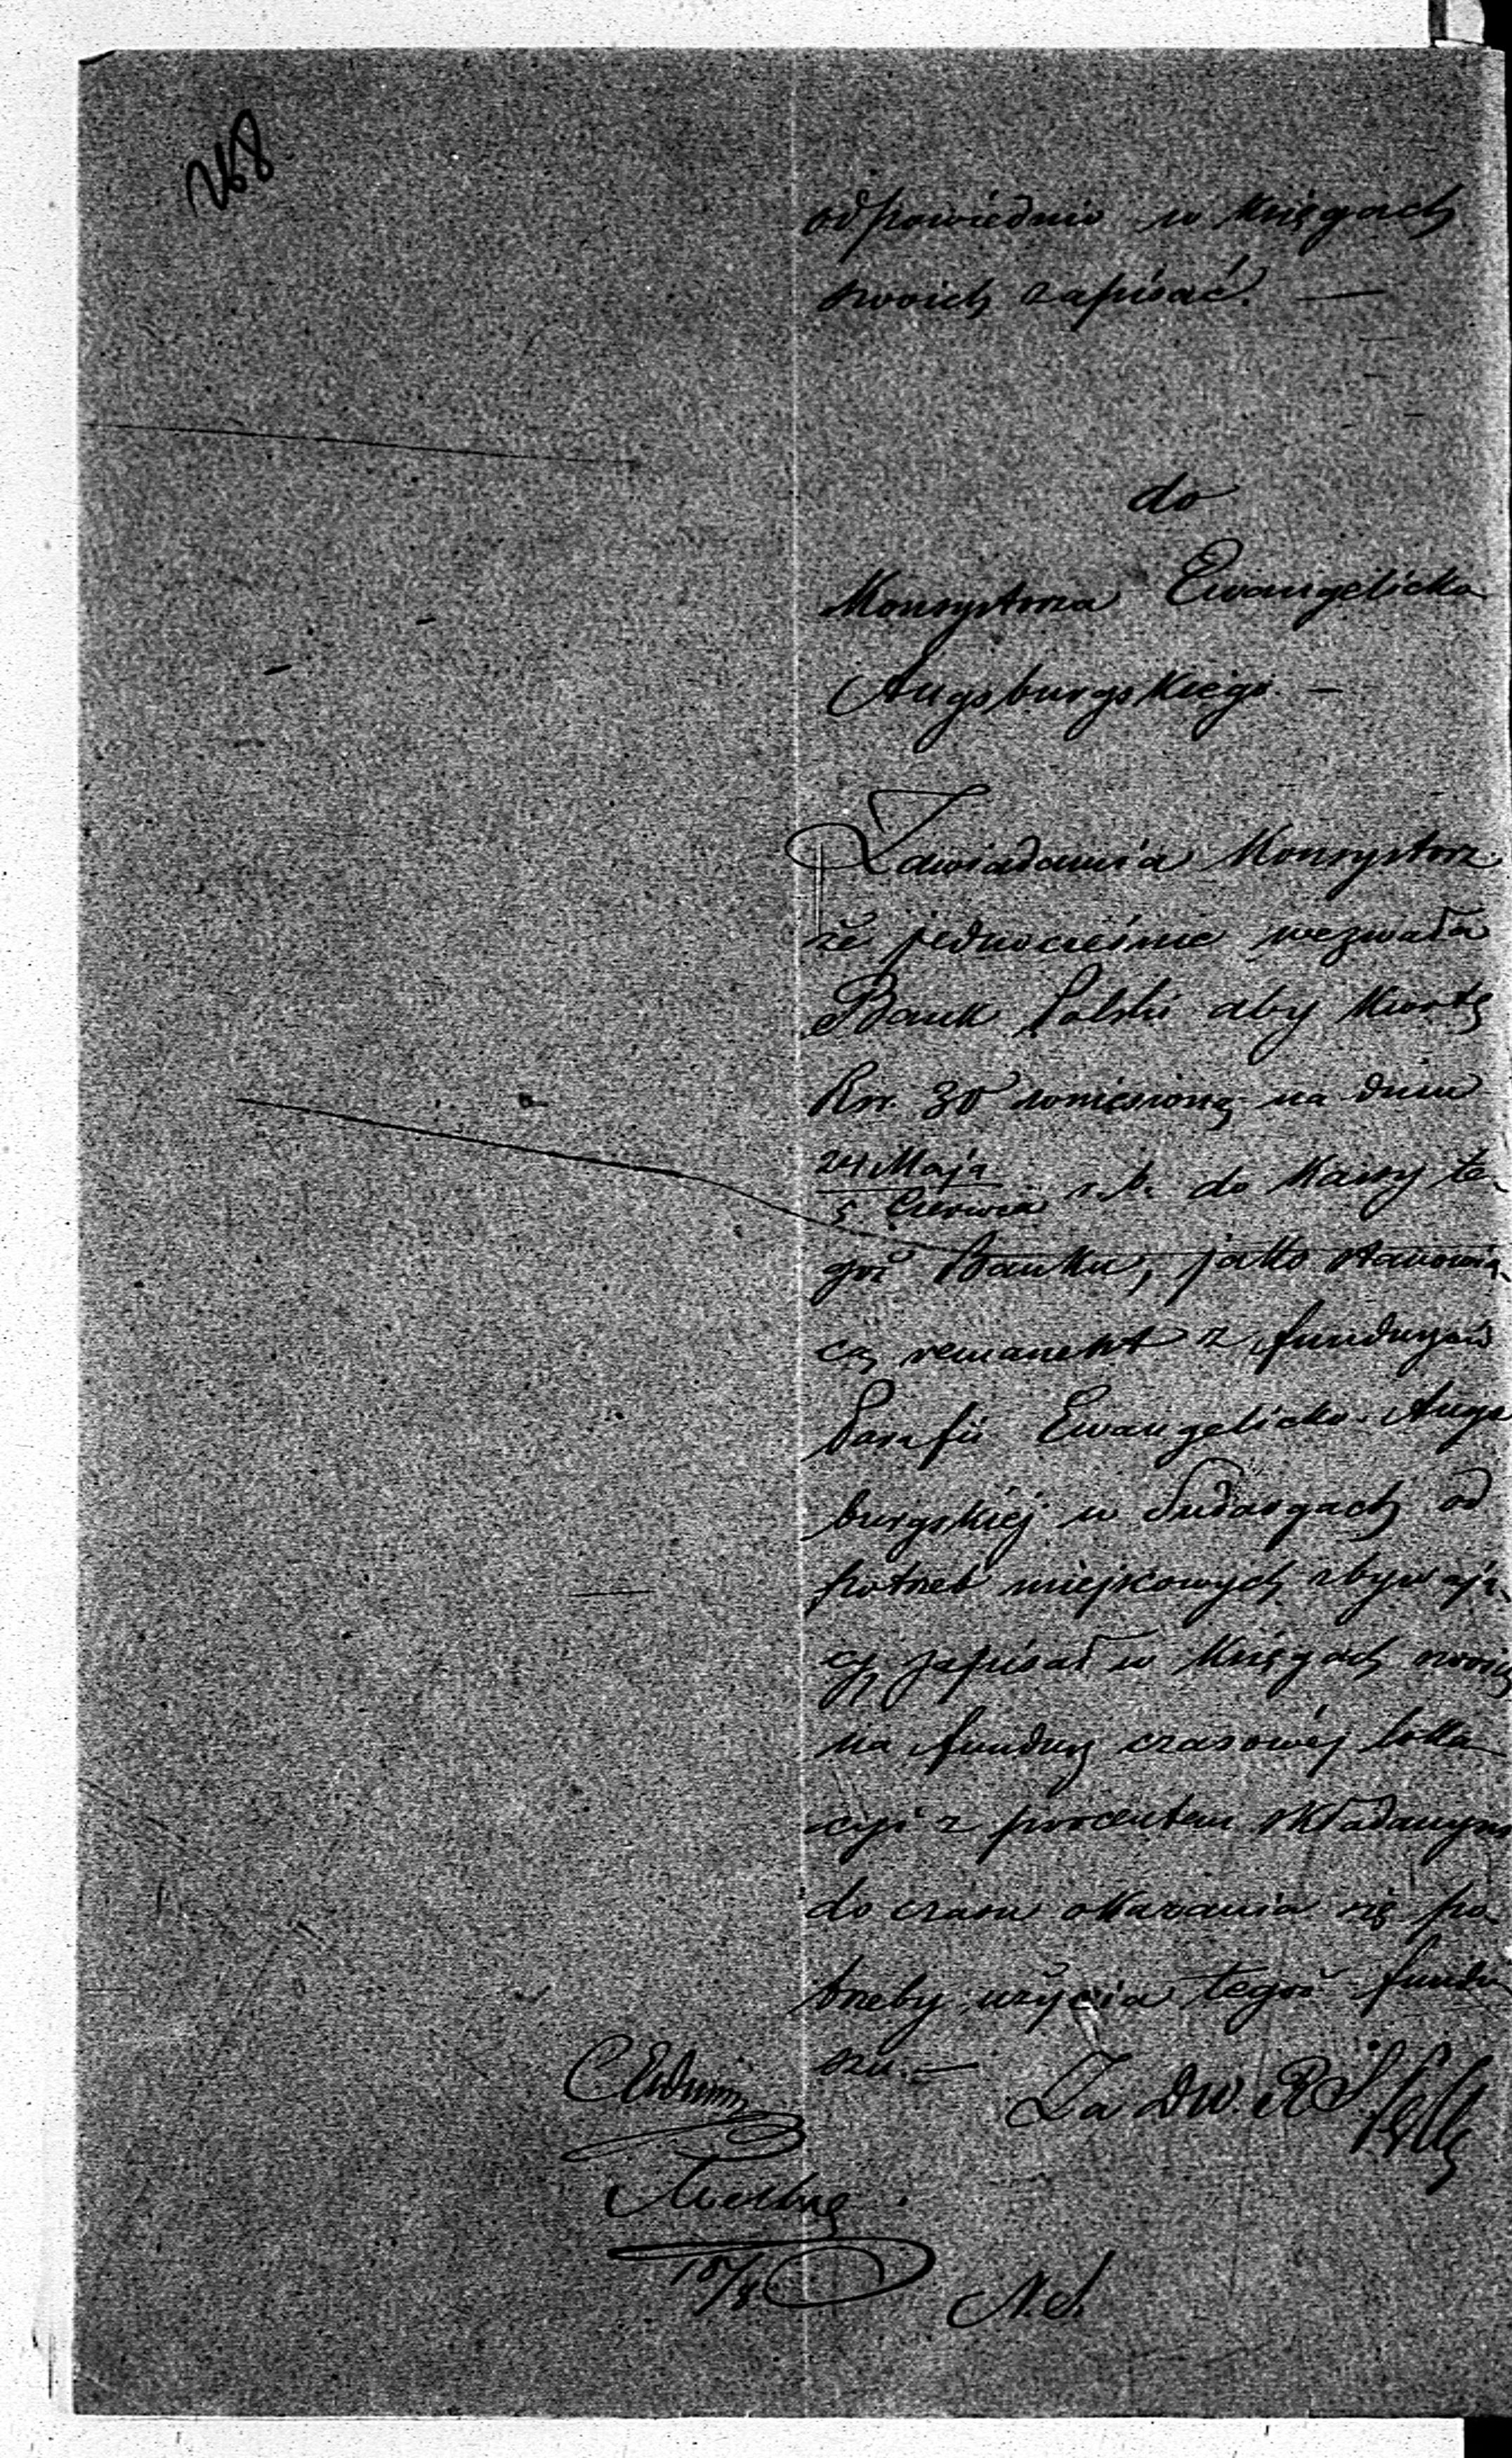 268
odpowiednio w Księgach
swoich zapisać. —
do
Konsystorza Ewangelicko
Augsburgskiego. —
Zawiadamia Konsystorz
że jednocześnie wezwała
Bank Polski aby Kwotę
Rsr. 30 wniesioną na dniu
24 Maja
5 Czerwca r. b. do Kassy te-
goż Banku, jako stanowią-
cą remanent z funduszów
Parafii Ewangelicko-Augs
burgskiéj w Sudargach od
potrzeb miejscowych zbywają
cy, zapisał w Księgach swoich
na fundusz czasowéj loka
cyi z procentem składanym
do czasu okazania się po-
trzeby użycia tegoż fundu
szu. —
Za Dw. R. S.
15/8
N. S.